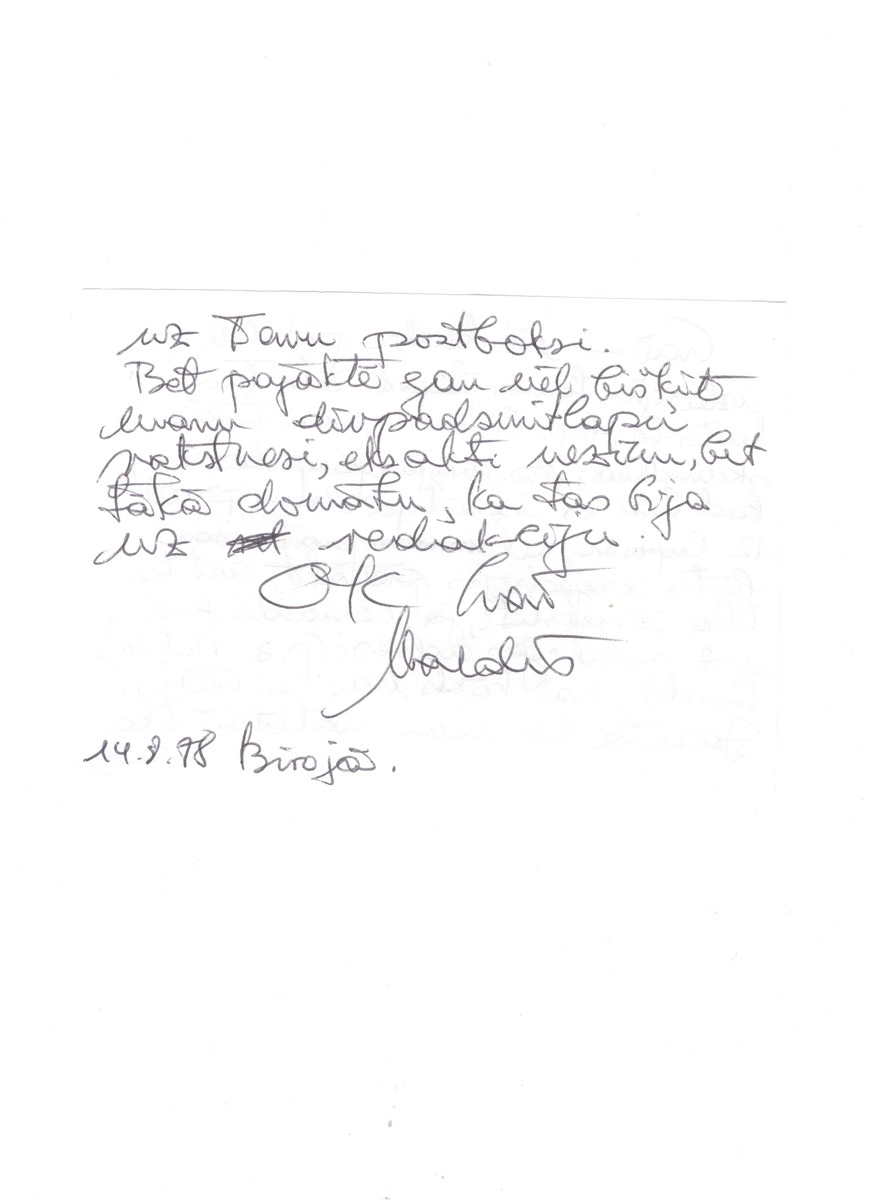 uz Tavu postboksi.
Bet pajāktē gan vēl bišķīt
manu divpadsmitlapu
rakstvesi, eksakti nezinu, bet
tākā domātu, ka tas bija
uz redakciju.
OK
14.8.98 Birojā.